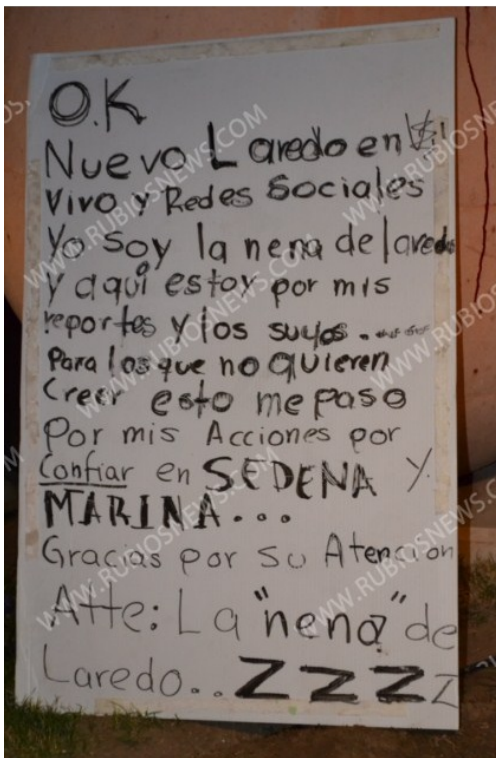 O.K
Nuevo Laredo en
Vivo y Redes Sociales
Yo soy la nena de laredo
y aquí estoy por mis
reportes y los suyos....
Para los que no quieren
Creer esto me paso
Por mis Acciones por
Confiar en SEDENA Y
MARINA...
Gracias por su Atencion
Atte: La "nena" de
Laredo..ZZZZ
WWW.RUBIOSNEWS.COM